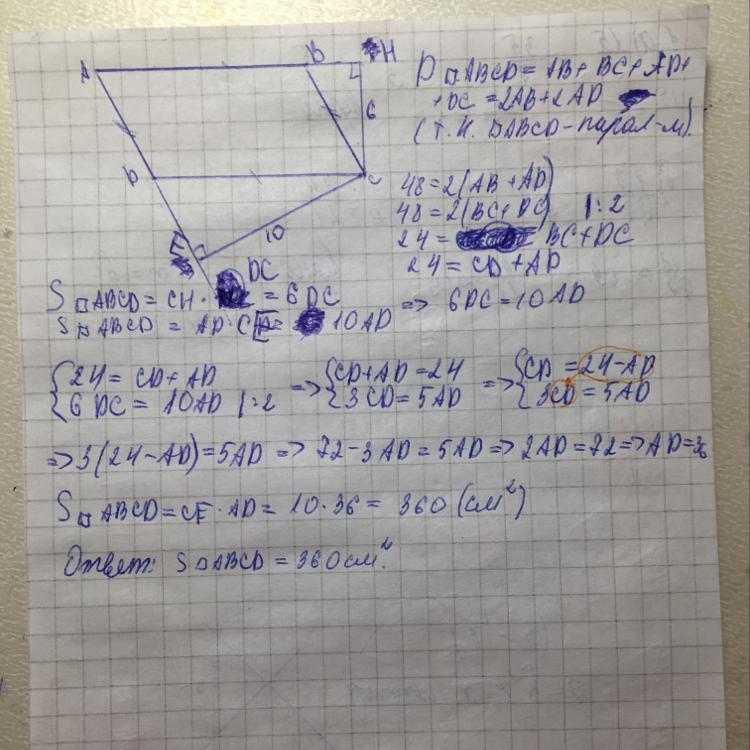 A B H
6
D C
10
E
P▱ABCD = AB + BC + AD +
+ DC = 2AB + 2AD
(т.к. ▱ABCD - парал-м).
48 = 2(AB + AD)
48 = 2(BC + DC) |:2
24 = BC + DC
24 = CD + AD
S▱ABCD = CH · DC = 6DC
S▱ABCD = AD · CE = 10AD => 6DC = 10AD
{24 = CD + AD => {CD + AD = 24 => {CD = 24 - AD
{6DC = 10AD |:2 {3CD = 5AD {3CD = 5AD
=> 3(24 - AD) = 5AD => 72 - 3AD = 5AD => 2AD = 72 => AD = 36
S▱ABCD = CE · AD = 10 · 36 = 360 (см²)
Ответ: S▱ABCD = 360 см².